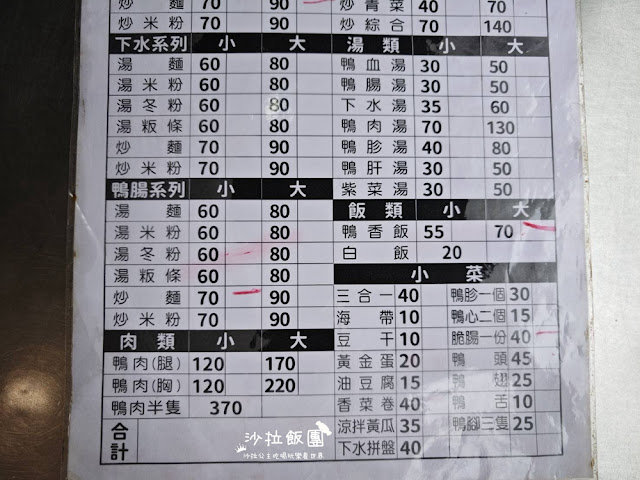 炒麵 70 90
炒米粉 70 90
下水系列 小 大
湯麵 60 80
湯米粉 60 80
湯冬粉 60 80
湯粄條 60 80
炒麵 70 90
炒米粉 70 90
鴨腸系列 小 大
湯麵 60 80
湯米粉 60 80
湯冬粉 60 80
湯粄條 60 80
炒麵 70 90
炒米粉 70 90
肉類 小 大
鴨肉(腿) 120 170
鴨肉(胸) 120 220
鴨肉半隻 370
合計
炒青菜 40 70
炒綜合 70 140
湯類 小 大
鴨血湯 30 50
鴨腸湯 30 50
下水湯 35 60
鴨肉湯 70 130
鴨胗湯 40 80
鴨肝湯 30 50
紫菜湯 30 50
飯類 小 大
鴨香飯 55 70
白飯 20
小菜
三合一 40 鴨胗一個 30
海帶 10 鴨心二個 15
豆干 10 脆腸一份 40
黃金蛋 20 鴨頭 45
油豆腐 15 鴨翅 25
香菜卷 40 鴨舌 10
涼拌黃瓜 35 鴨腳三隻 25
下水拼盤 40
沙拉飯團
沙拉公主吃喝玩樂看世界